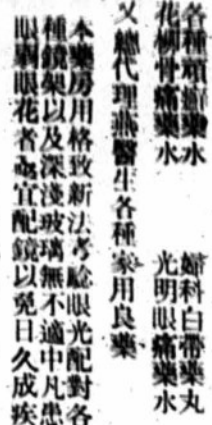 各種頑癬藥水　婦科白帶藥丸
花柳骨痛藥水　光明眼痛藥水
又總代理燕醫生各種家用良藥
本藥房用格致新法考驗眼光配對各
種鏡架以及深淺玻璃無不適中凡患
眼弱眼花者亟宜配鏡以免日久成疾